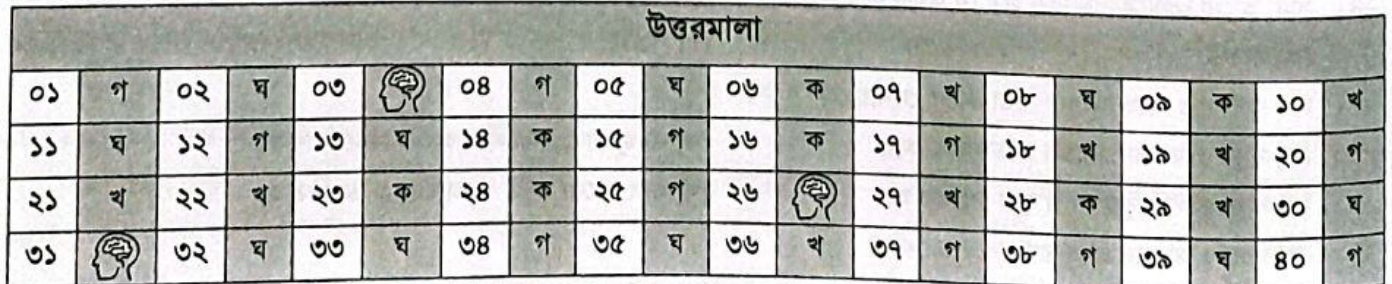 উত্তরমালা
০১ গ ০২ ঘ ০৩ ০৪ গ ০৫ ঘ ০৬ ক ০৭ খ ০৮ ঘ ০৯ ক ১০ খ
১১ ঘ ১২ গ ১৩ ঘ ১৪ ক ১৫ গ ১৬ ক ১৭ গ ১৮ খ ১৯ খ ২০ গ
২১ খ ২২ খ ২৩ ক ২৪ ক ২৫ গ ২৬ ২৭ খ ২৮ ক ২৯ খ ৩০ ঘ
৩১ ৩২ ঘ ৩৩ ঘ ৩৪ গ ৩৫ ঘ ৩৬ খ ৩৭ গ ৩৮ গ ৩৯ ঘ ৪০ গ